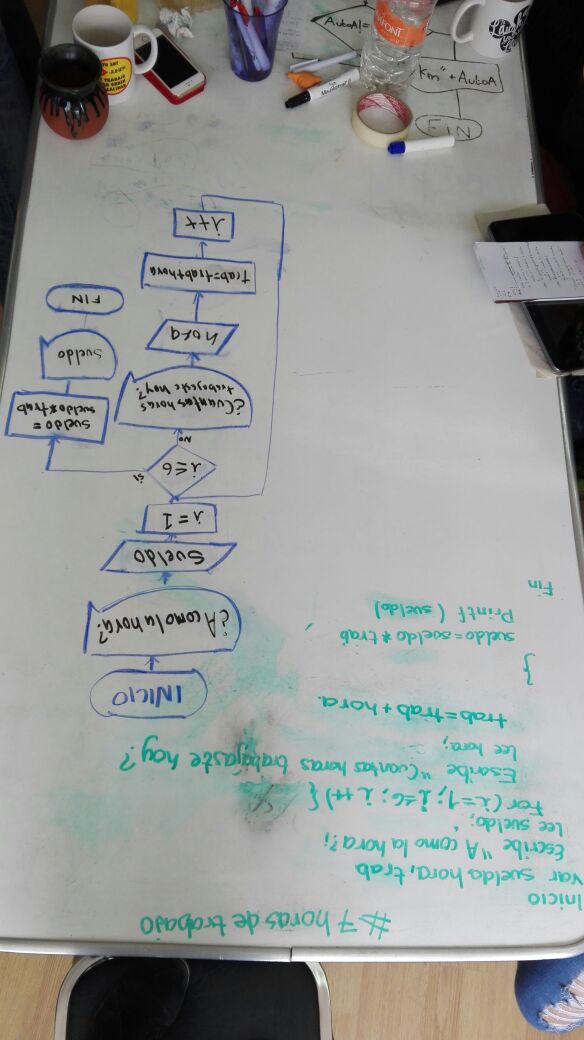 #7 horas de trabajo
Inicio
var suelda hora, trab
Escribe "A como la hora?;
Lee sueldo;
For (i=1; i=6; i++) {
Escribe "Cuantas horas trabajaste hoy?
lee hora;
trab=trab+hora.
}
sueldo=sueldo*trab
Printf (sueldo)
Fin
INICIO
¿A como la hora?
Sueldo
i=1
i≤6
Si
No
¿Cuantas horas
trabajaste hoy?
hora
Trab=trab+hora
i++
sueldo=
sueldo*trab
Sueldo
FIN
AutoA
Km" + AutoA
FIN